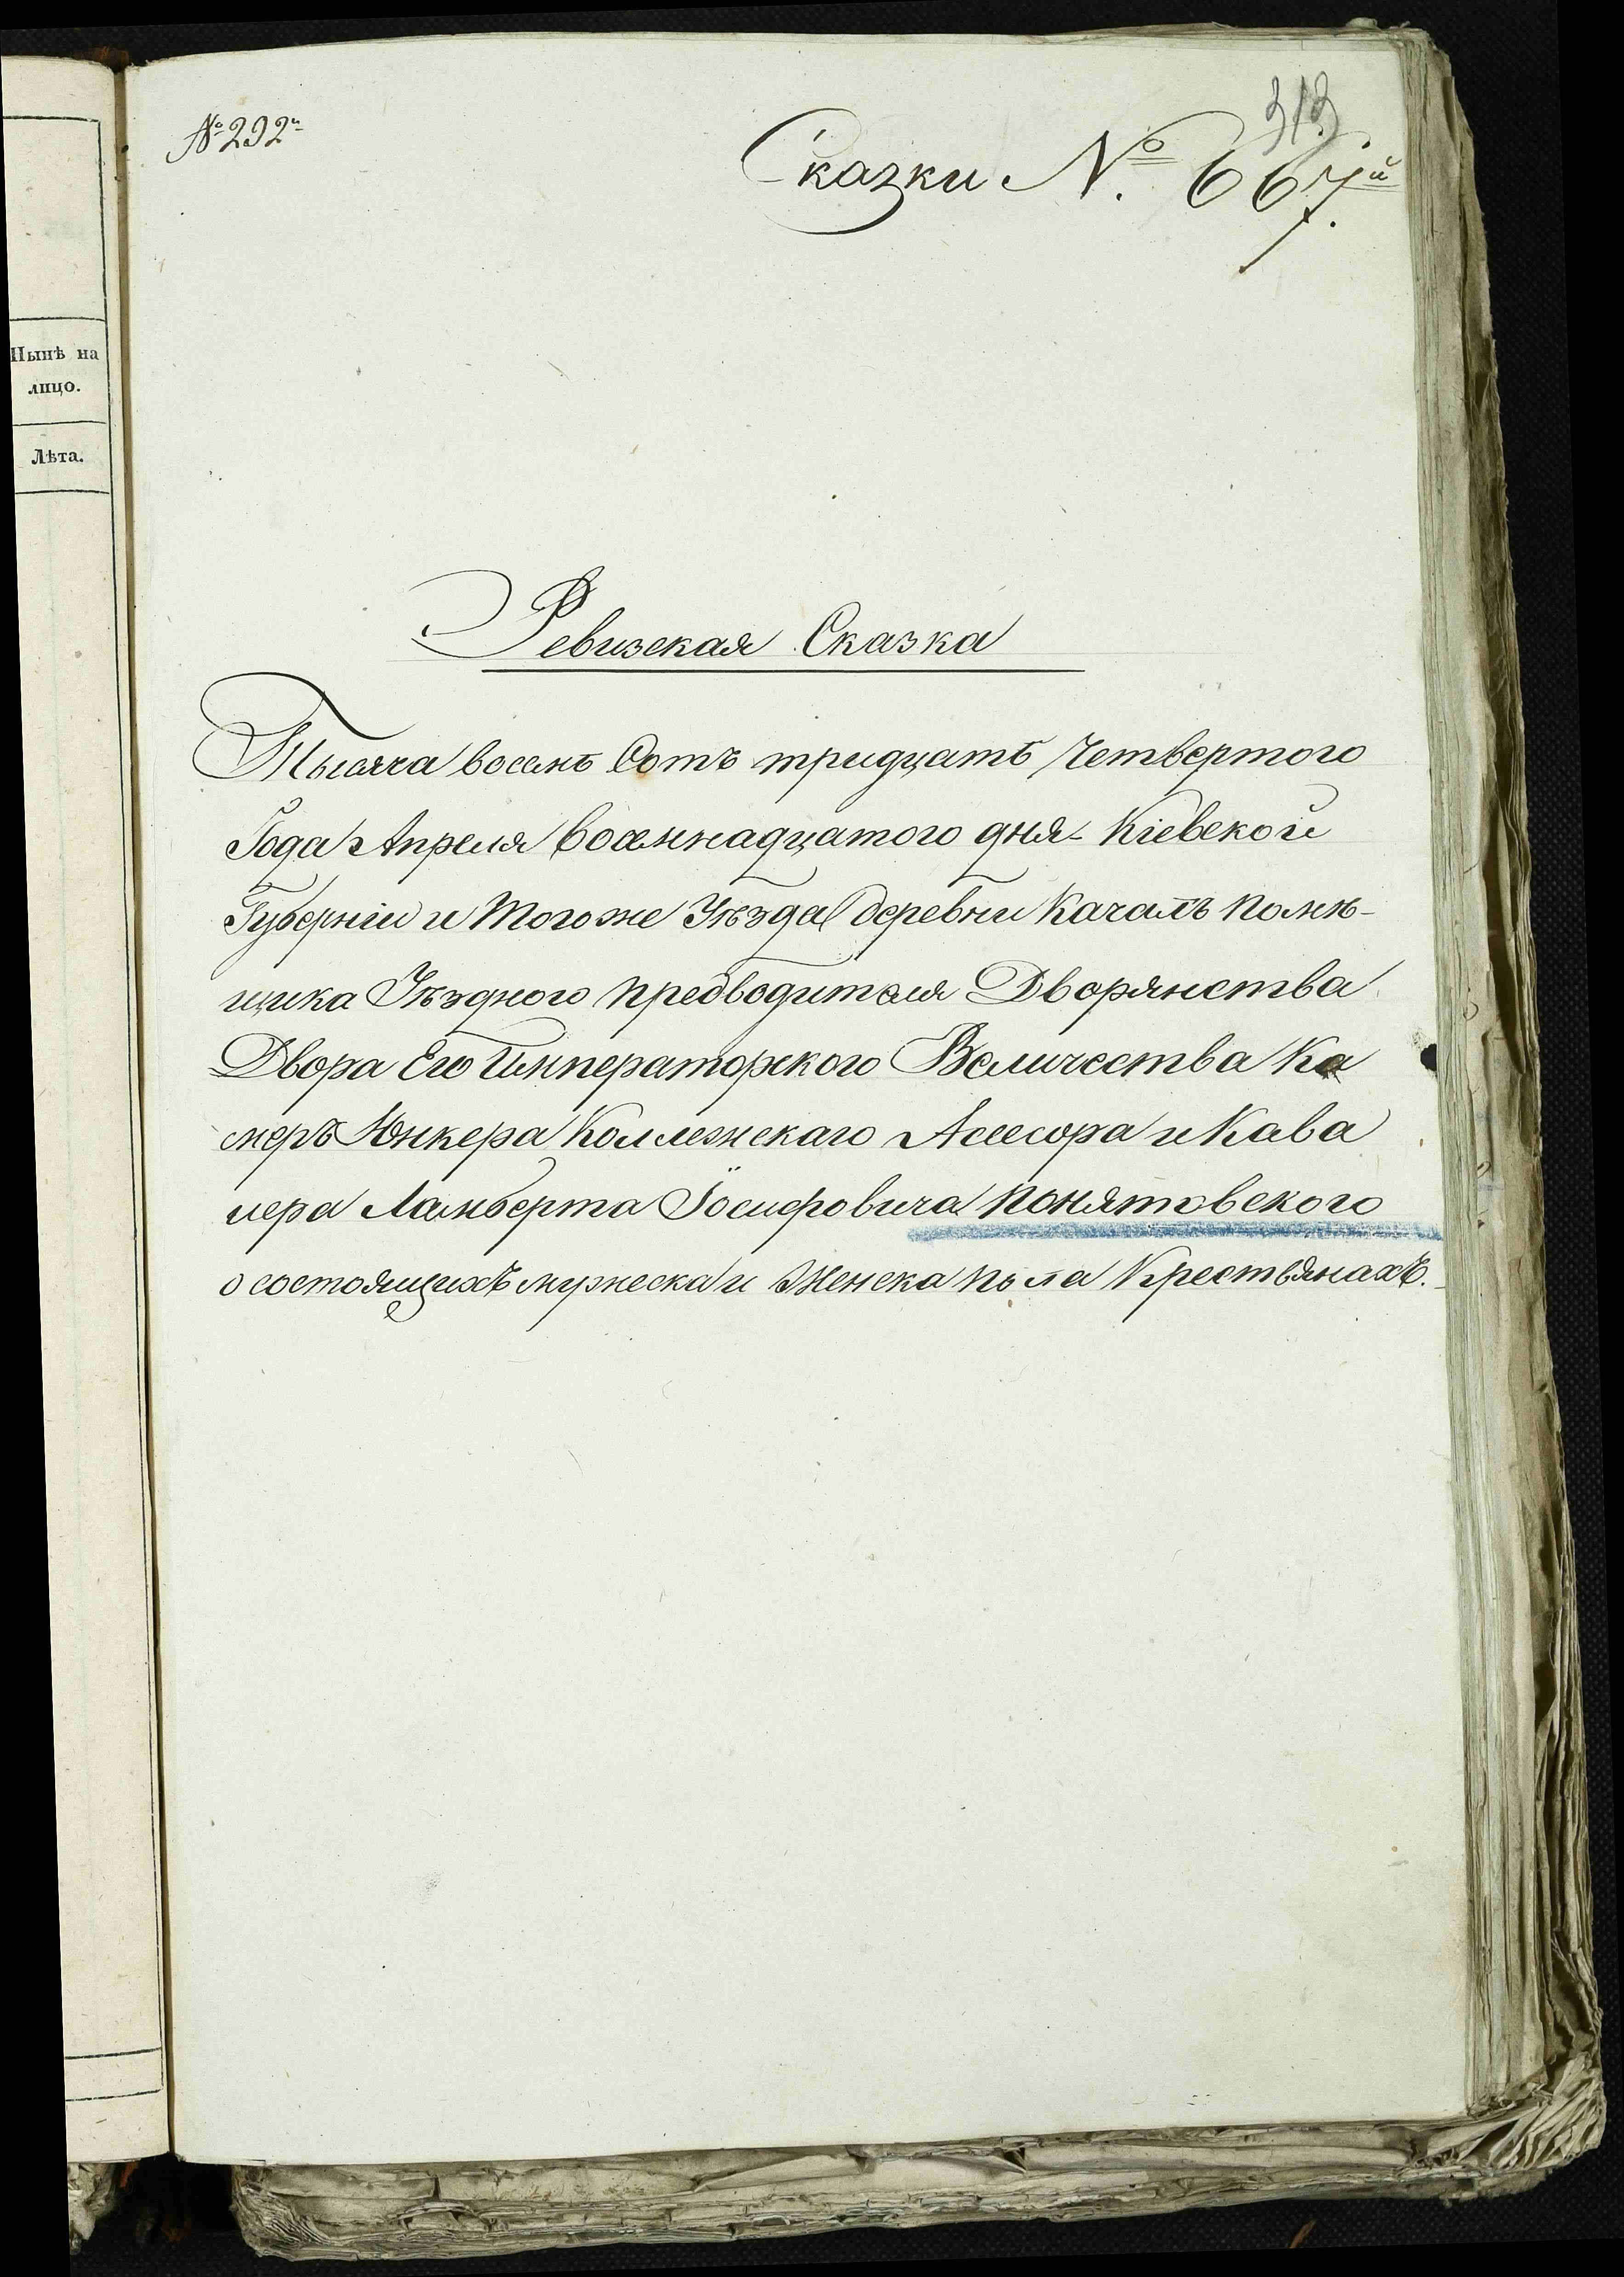 Нынѣ на
лицо.
Лѣта.
№ 292й
313
Сказки №. 667й.
Ревизская Сказка
Тысяча восемь Сотъ тридцать Четвертого
Года Апреля восемнадцатого дня Кіевской
Губерніи и Того же Уѣзда деревни Качалъ Помѣ-
щика Уѣзднoго предводителя Дворянства
Двора Его Императорского Величества Ка
меръ Юнкера Коллежскаго Асессора и Кава
лера Ламберта Іосифовича Понятовского
о состоящихъ мужеска и Женска пола Крестьянахъ.